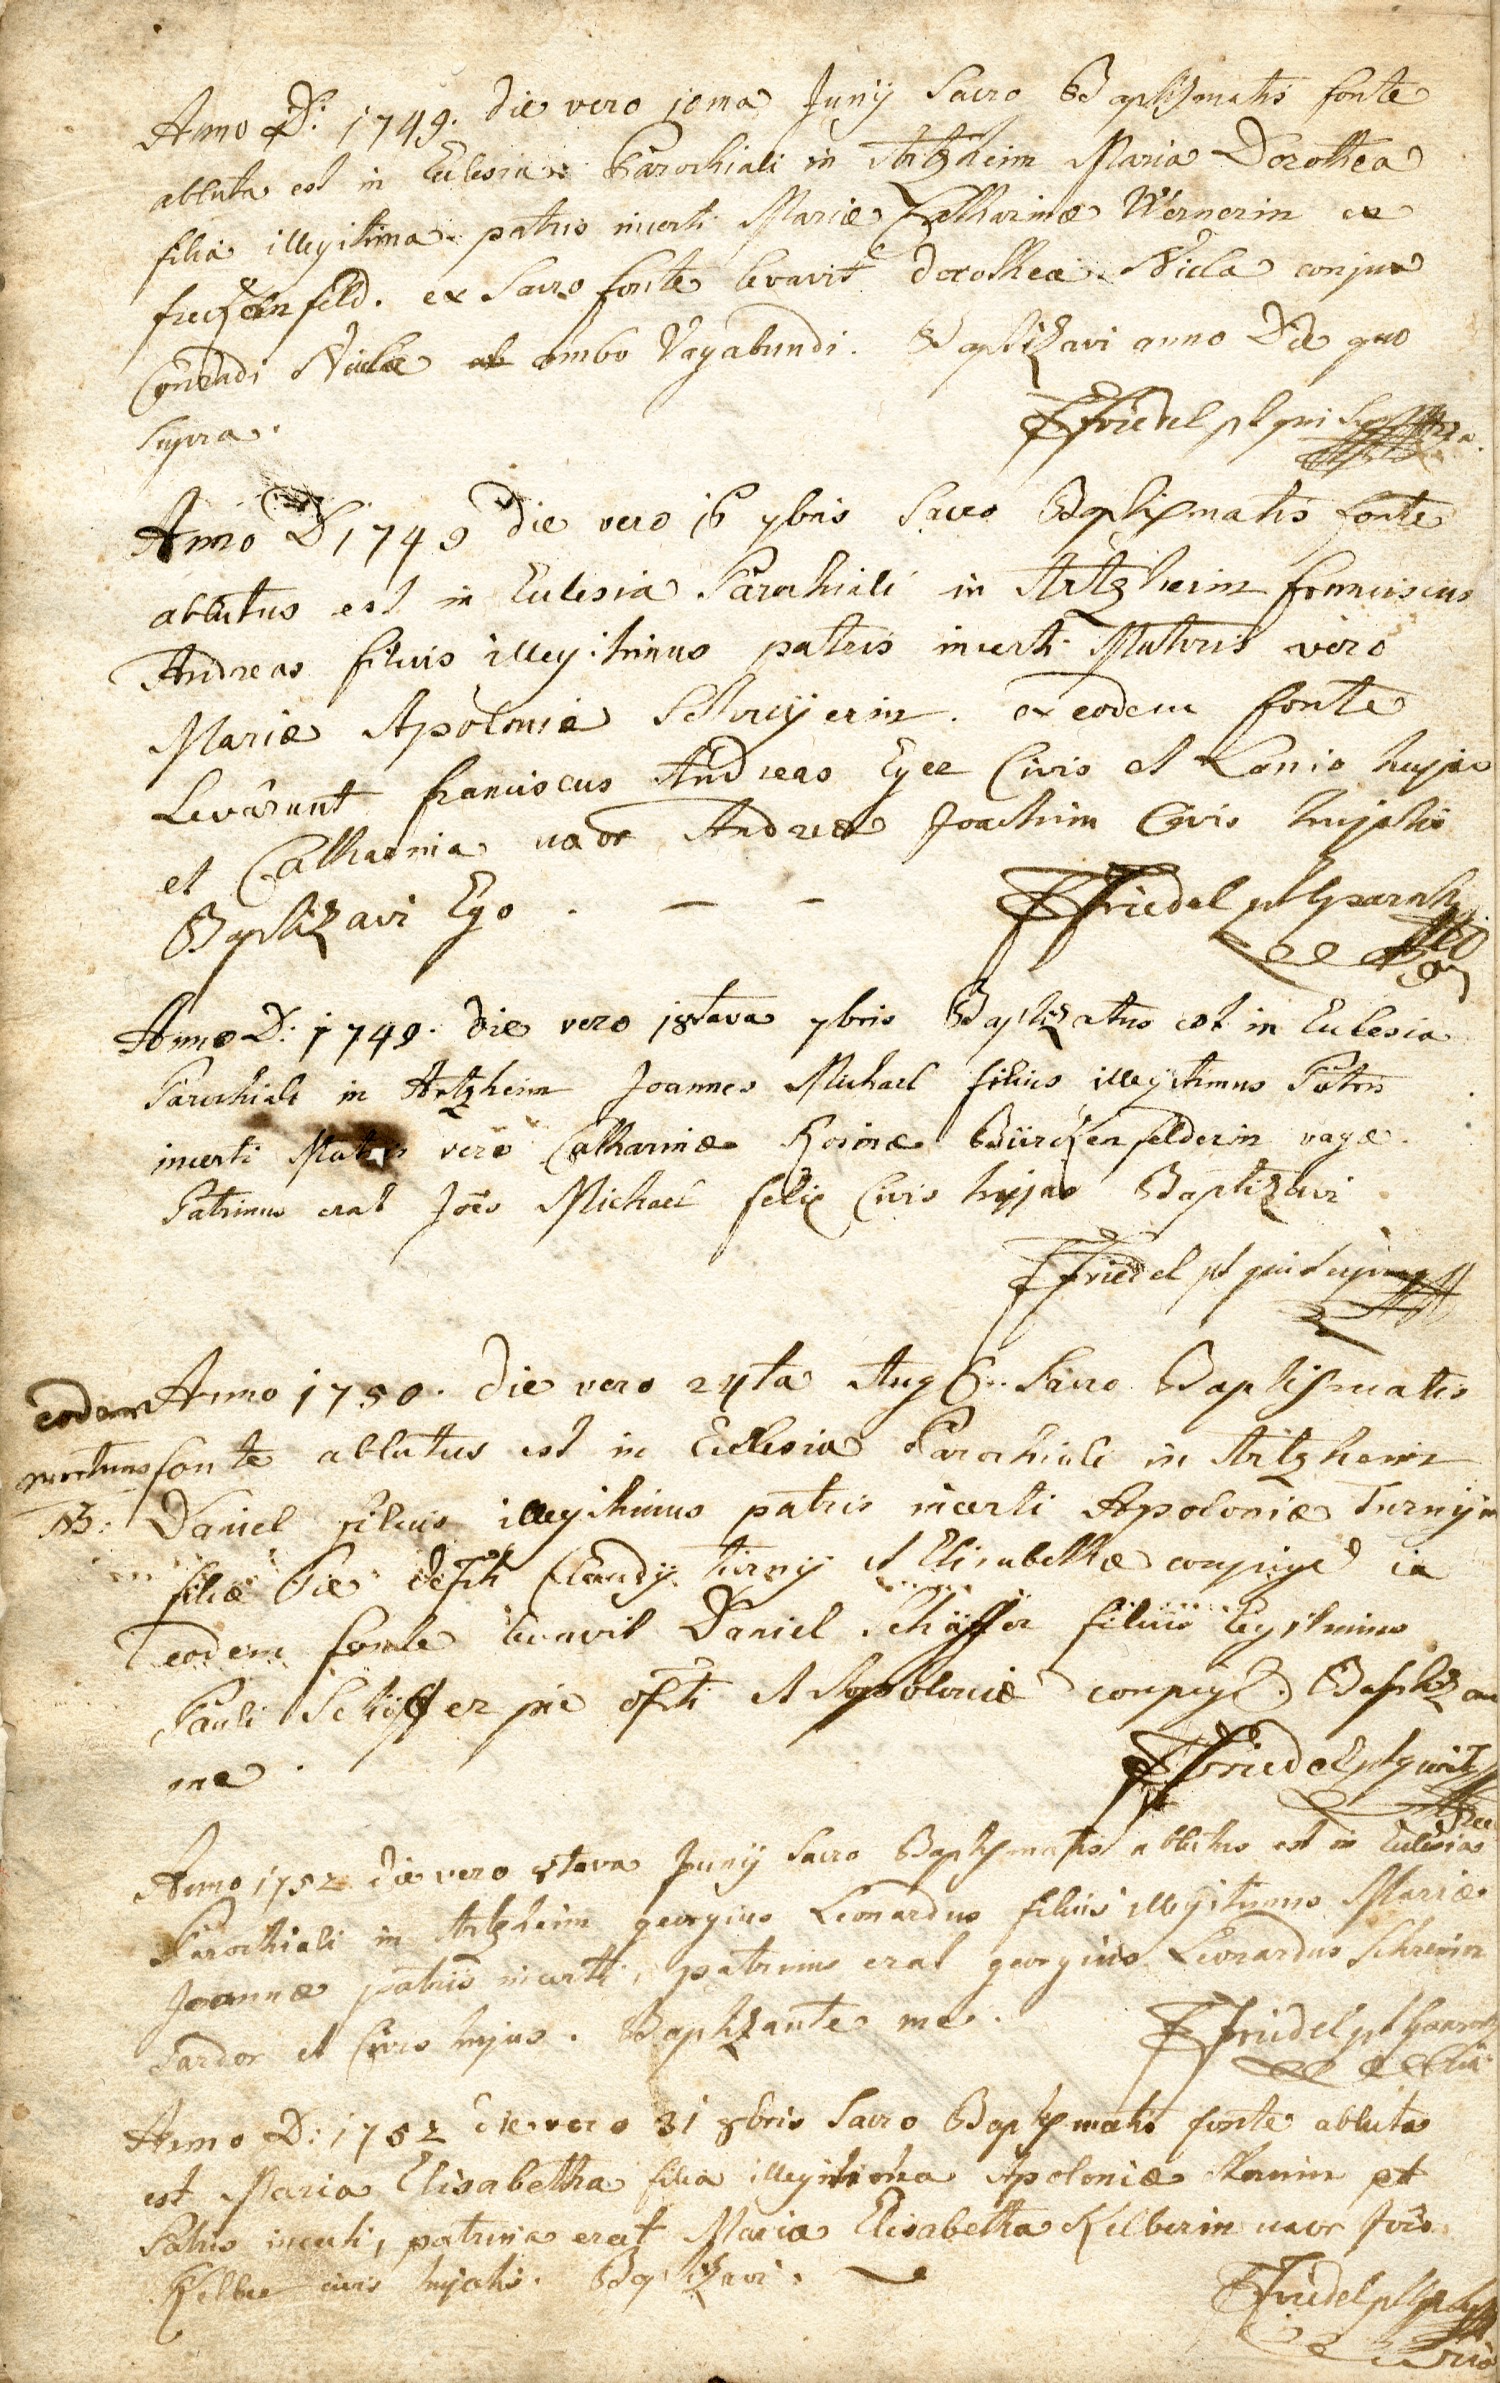 Anno D: 1749. die vero 10ma Junÿ Sacro Baptismatis fonte
abluta est in Eclesia Parochiali in Artzheim Maria Dorothea
filia illegitima patris incerti Mariæ Catharinæ Wernerin ex
feld. ex Sacro fonte levavit dorothea Nicla conjux
Conradi Niclæ ambo Vagabundi. Baptizavi anno Die quo
supra.
FFriedel pt qui Supra
Anno D 1749 die vero 16 7bris Sacro Baptismatis fonte
ablutus est in Eclesia Parochiali in Artzheim franciscus
Andreas filius illegitimus patris incerti Matris vero
Mariæ Apoloniæ . ex eodem fonte
Levarunt franciscus Andreas Eger Civis et Lanio hujas
et Catharina uxor Andreæ Joachim Civis hujatis
Baptizavi Ego . – –
FFriedel pt parochus
Anno D: 1749. die vero 18tava 7bris Baptizatus est in Eclesia
Parochiali in Artzheim Joannes Michael filius illegitimus Patris
incerti Matris vero Catharinæ Rosinæ Bürckenfelderin vagæ.
Patrinus erat Joes Michael felix Civis hujas Baptizavi
FFriedel pt qui supra
eodem Anno 1750. die vero 24ta Aug Sacro Baptismatis
mortuus fonte ablutus est in Eclesia Parochiali in Artzheim
NB: Daniel filius illegitimus patris incerti Apoloniæ
filiæ Piæ defti Claudÿ turnÿ et Elisabethæ conjuge
eodem fonte levavit Daniel Schäffer filius legitimus
Pauli Schäffer pie et Apoloniæ
me.
FFriedel pt
Anno 1752 die vero 8tava Junÿ Sacro Baptismatis ablutus est in Eclesia
Parochiali in Artzheim georgius Leonardus filius illegitimus Mariæ
Joannæ patris incerti, patrinus erat georgius Leonardus
Sardor et Civis hujus. Baptizante me.
FFriedel pt
Anno D: 1752 die vero 31 8bris Sacro Baptismatis fonte abluta
est Maria Elisabetha filia illegitima Apoloniæ
Patris incerti, patrina erat Maria Elisabetha Kelberin uxor Jois
civis hujatis. Baptizavi.
FFriedel pt